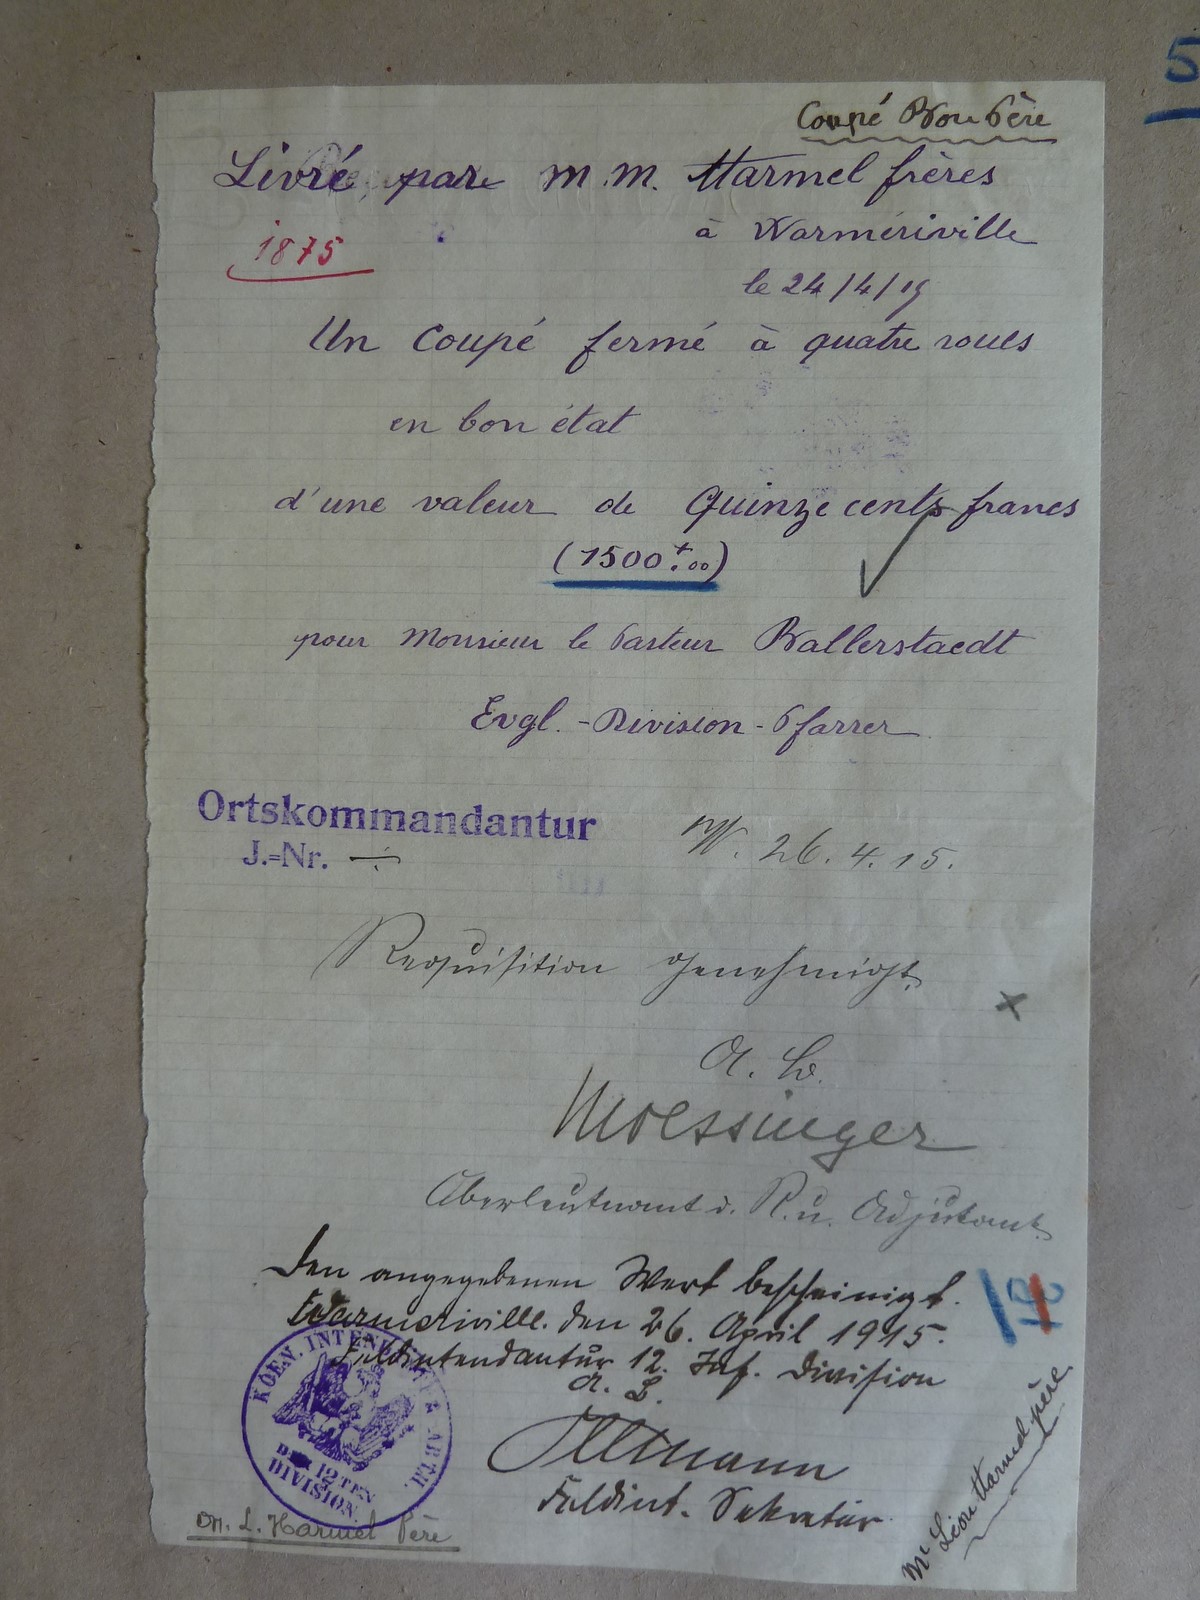 5
Coupé Bon Père
Livré par M.M. Harmel frères
1875
à Warmériville
le 24/4/15
Un Coupé fermé à quatre roues
en bon état
d'une valeur de Quinze cents francs
(1500 f.00)
pour Monsieur le Pasteur Ballerstaedt
Evgl. - Division - Pfarrer
Ortskommandantur
J.=Nr. ÷
W. 26. 4. 15.
Requisition genehmigt.
x
A. B.
Moessinger
Oberleutnant d. R. u. Adjutant.
Den angegebenen Wert bescheinigt.
Warmeriville. den 26. April 1915.
Feldintendantur 12. Inf. Division
A. B.
Feldint. Sekretär
KOEN. INTEND
DER 12TEN
DIVISION.
M. L. Harmel Père
Mr Léon Harmel père